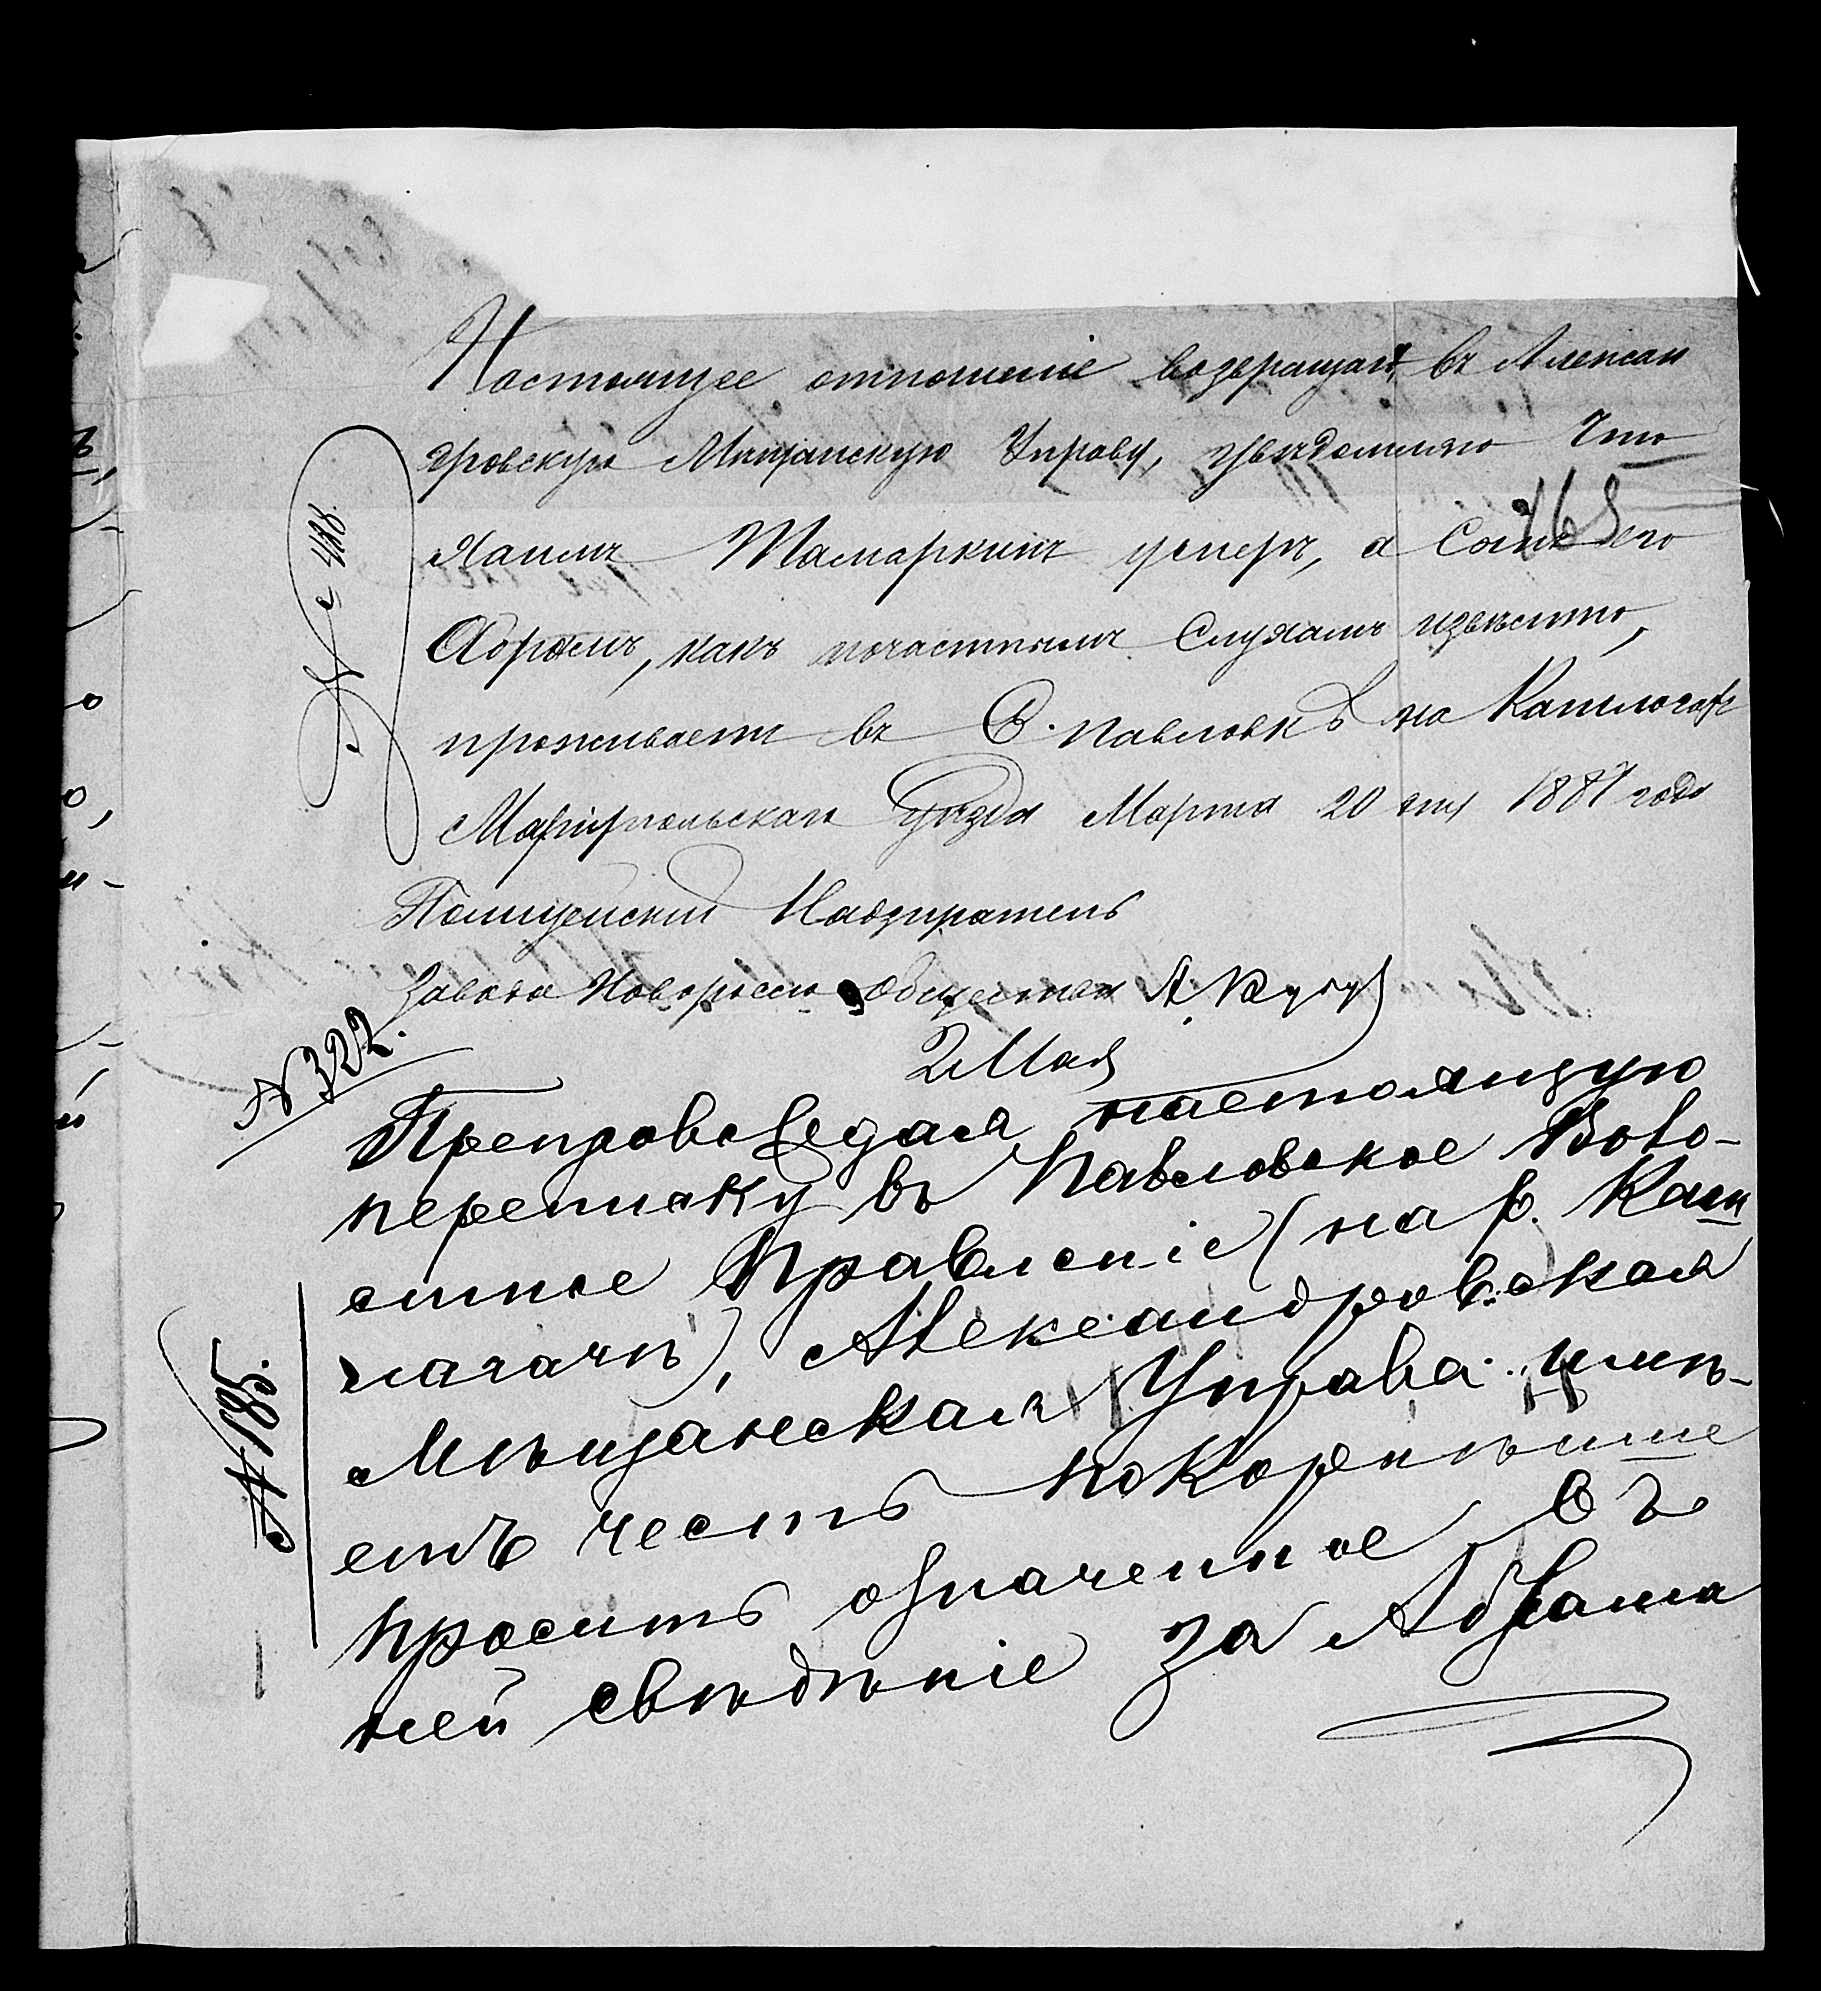 Настоящее отношеніе возвращая въ Алексан
дровскую Мещанскую Управу, увѣдомляю что
Хаимъ Тамаркинъ умеръ, а Сынъ его
165
Абрамъ, какъ почастнымъ Слухамъ извѣстно,
проживаетъ въ С. Павловкѣ на Кашлагаче
Маріупольскаго уѣзда Марта 20 дня 1887 года
№ 418.
Полицейскій Надзиратель
Завода Новоросс. общества
№ 322.
2 Мая
Препровождая настоящую
переписку въ Павловское Воло-
стное Правленіе (на р. Каш
лагачѣ), Александровская
Мѣщанская Управа имѣ-
етъ честь покорнѣйше
просить означенное въ
ней свѣдѣніе за Абрама